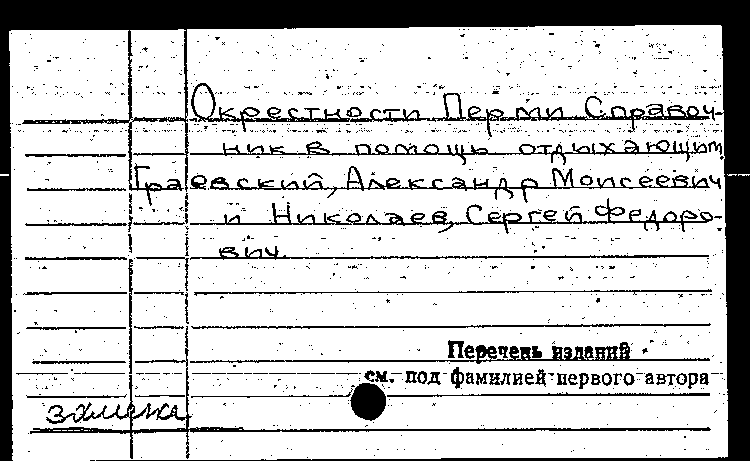 Окрестности Перми Справоч-
ник в помощь отдыхающим
Граевский, Александр Моисеевич
и Николаев, Сергей Федоро-
вич.
Перечень изданий
см. под фамилией первого автора
замена